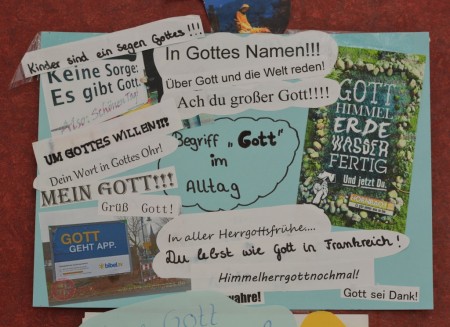 Kinder sind ein Segen Gottes!!!
Keine Sorge:
Es gibt Gott.
In Gottes Namen!!!
Über Gott und die Welt reden!
Ach du großer Gott!!!!
UM GOTTES WILLEN!!!
Dein Wort in Gottes Ohr!
MEIN GOTT!!!
Grüß Gott!
Begriff „Gott"
im
Alltag
GOTT
HIMMEL
ERDE
WASSER
FERTIG
Und jetzt Du.
HORNBACH
GOTT
GEHT APP.
In aller Herrgottsfrühe....
Du lebst wie Gott in Frankreich!
Himmelherrgottnochmal!
wahre!
Gott sei Dank!
Gott